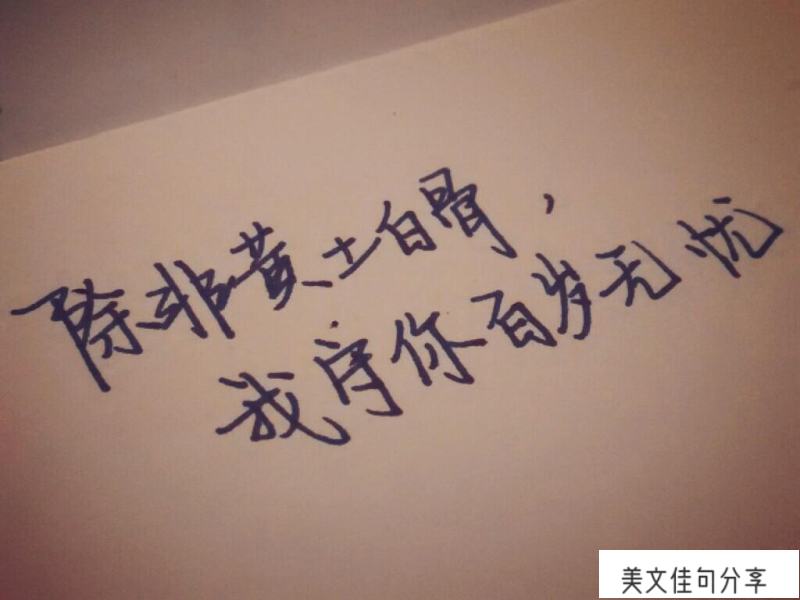 除非黄土白骨，
我守你百岁无忧
美文佳句分享